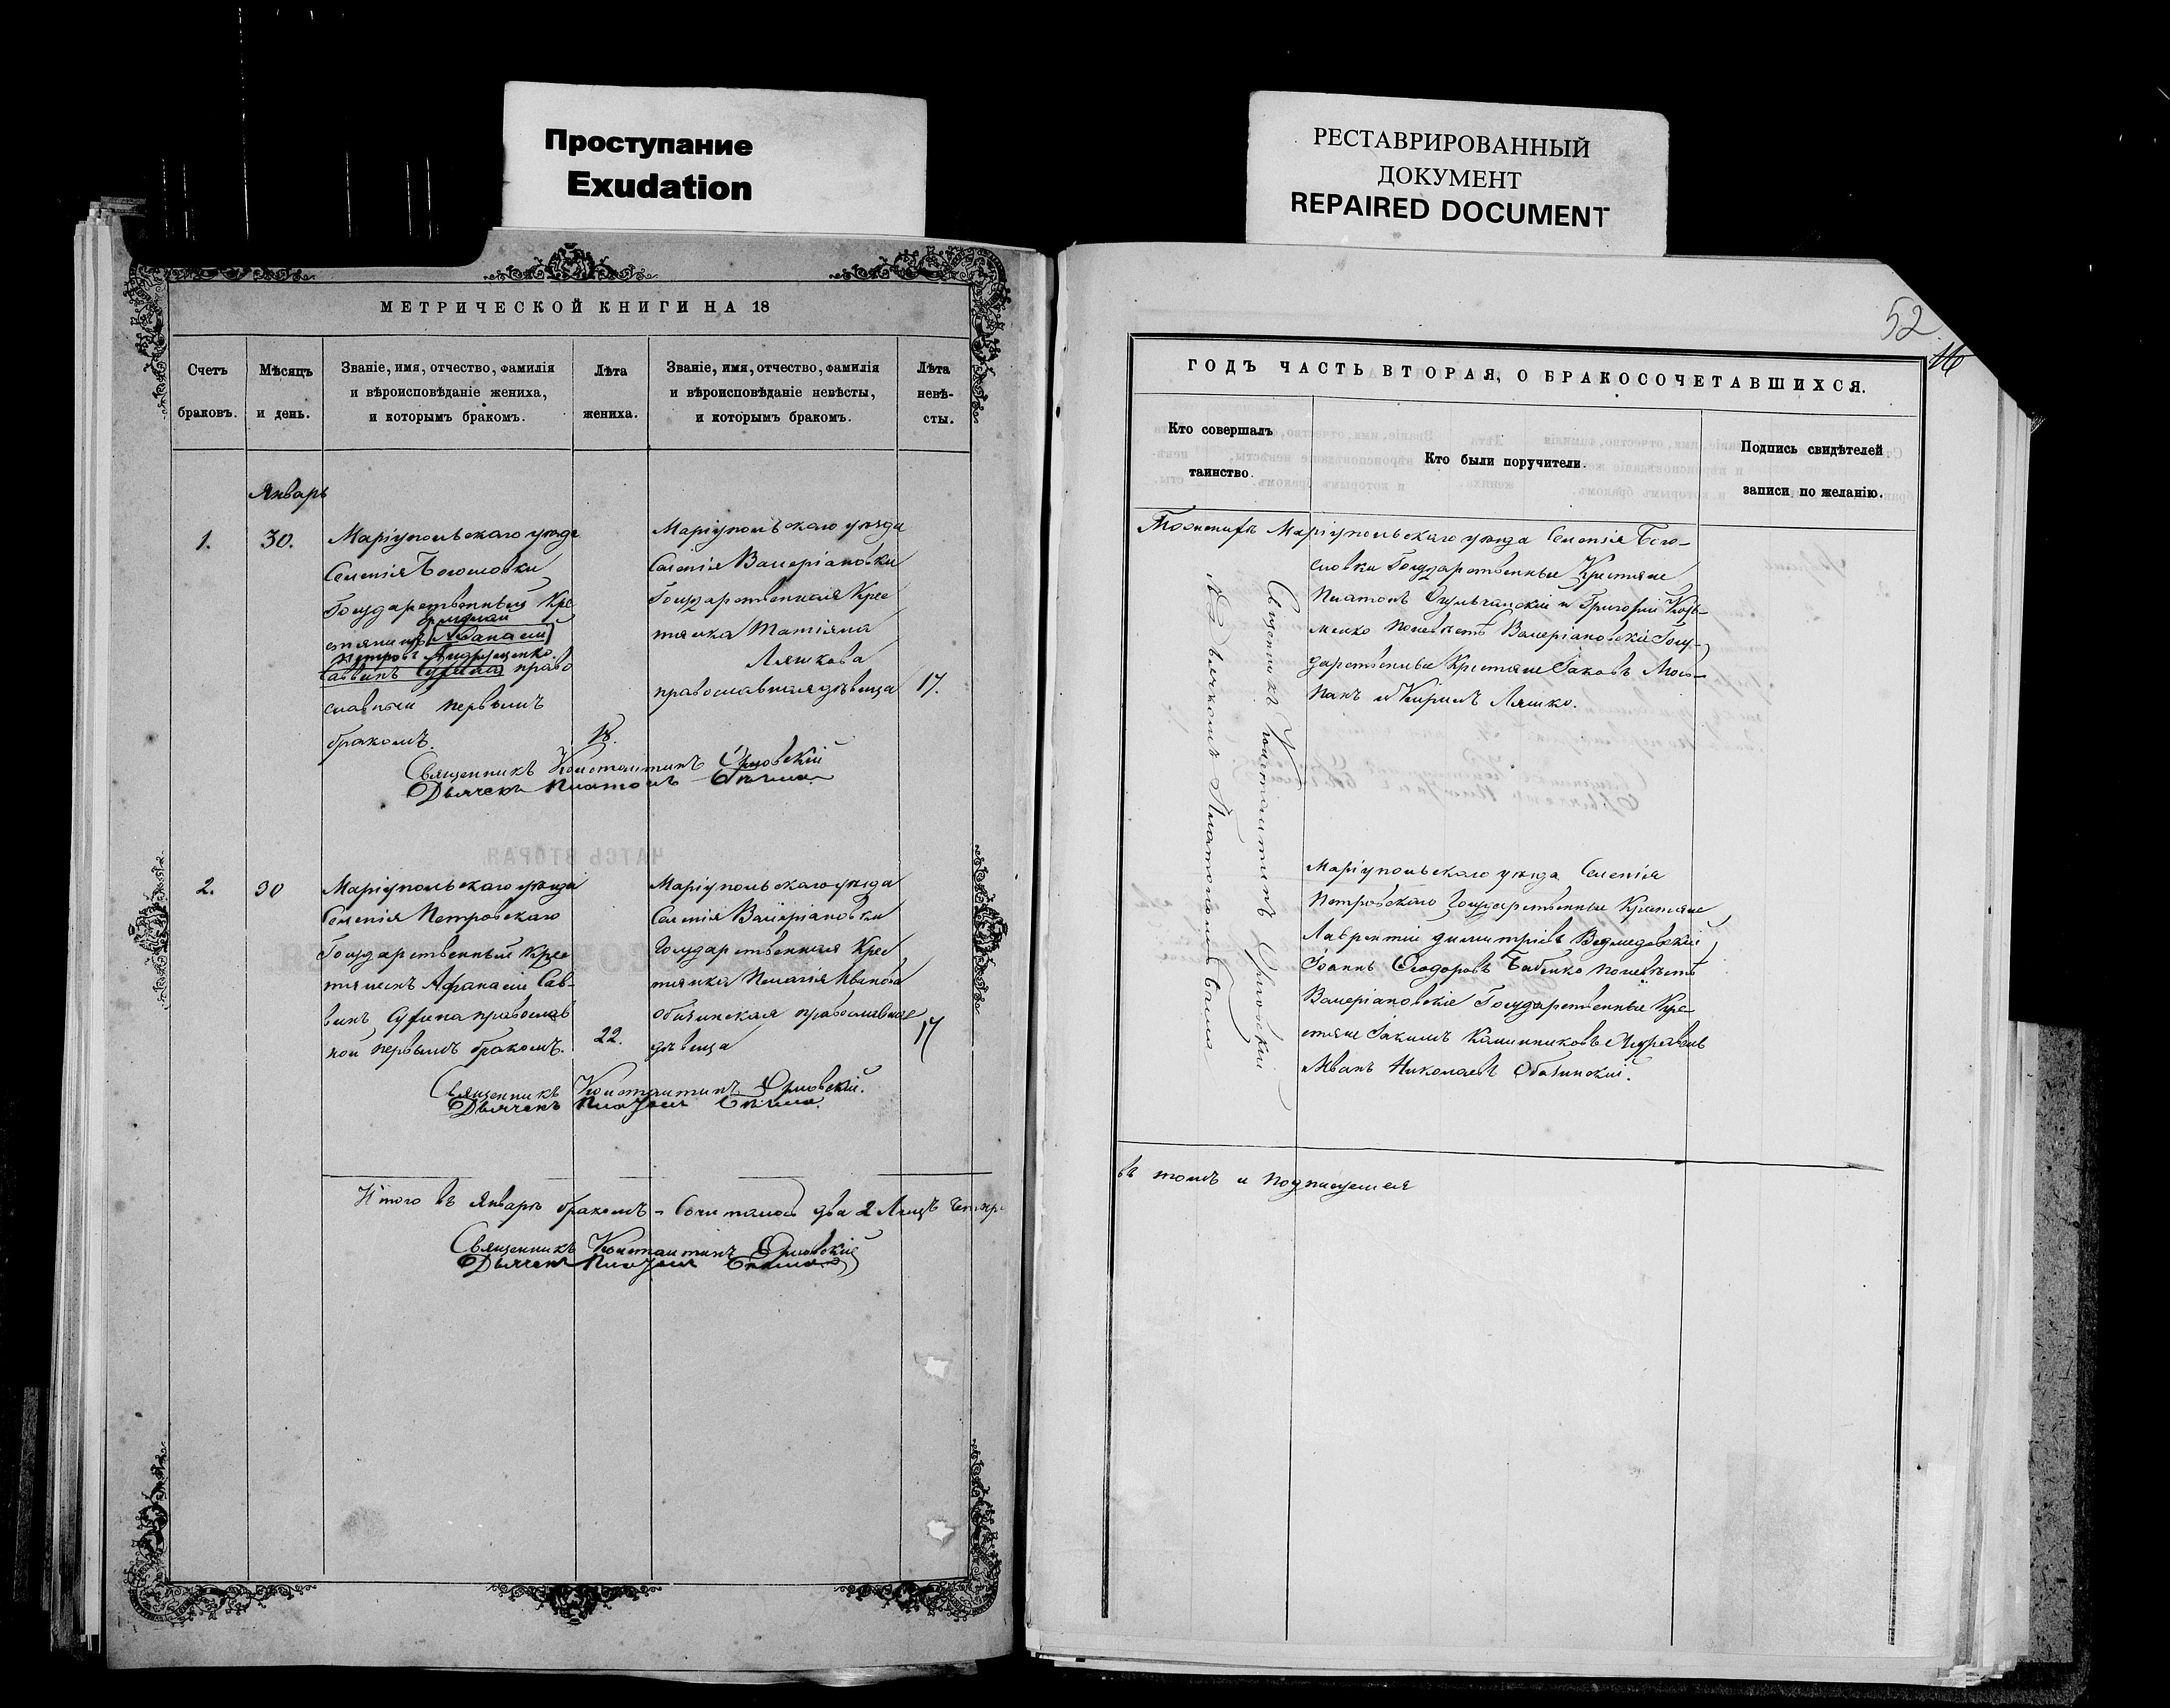 Проступание
Exudation
РЕСТАВРИРОВАННЫЙ
ДОКУМЕНТ
REPAIRED DOCUMENT
МЕТРИЧЕСКОЙ КНИГИ НА 18
Счетъ
браковъ.
Мѣсяцъ
и день.
Званіе, имя, отчество, фамилія
и вѣроисповѣданіе жениха,
и которымъ бракомъ.
Лѣта
жениха.
Званіе, имя, отчество, фамилія
и вѣроисповѣданіе невѣсты,
и которымъ бракомъ.
Лѣта
невѣ-
сты.
Январь
1.
30.
Маріупольскаго уѣзда
Селенія Богословки
Государственный Кре
стянинъ Афанасій
Петровъ Андрущенко
Саввинъ Сухина право
славный первымъ
бракомъ.
18.
Маріупольскаго уѣзда
Селенія Валеріановки
Государственная Крес
тянка Татіяна
Ляшкова
православная дѣвица
17.
Священникъ Константинъ Орловскій
Дьячекъ Платонъ
2.
30
Маріупольскаго уѣзда
Селенія Петровскаго
Государственный Крес
тянинъ Афанасій Сав-
винъ Сухина православ
ной первымъ бракомъ.
22.
Маріупольскаго уѣзда
Селенія Валеріановки
Государственная Крес
тянка Пелагія Иванова
православная
дѣвица
17
Священникъ Константинъ Орловскій.
Дьячекъ Платонъ
Итого въ Январѣ бракомъ Сочиталось два 2 Лицъ четыре
Священникъ Константинъ Орловскій
Дьячекъ Платонъ
52
ГОДЪ ЧАСТЬ ВТОРАЯ, О БРАКОСОЧЕТАВШИХСЯ.
Кто совершалъ
таинство.
Кто были поручители.
Подпись свидѣтелей
записи по желанію.
Маріупольскаго уѣзда Селенія Бого-
словки Государственные Крестяне
Платонъ и Григорій
по невѣстѣ Валеріановскіе Госу-
дарственные Крестяне Іаковъ
и Кирилъ Ляшко.
Священникъ Константинъ Орловскій
съ Дьячкомъ Платономъ
Маріупольскаго уѣзда Селенія
Петровскаго Государственные Крестяне
Лаврентій Димитріевъ Ведмедовскій
Іоаннъ Ѳеодоровъ Бабенко по невѣстѣ
Валеріановскіе Государственные Кре-
стяне Іакимъ
Иванъ Николаевъ
въ томъ и подписуемся